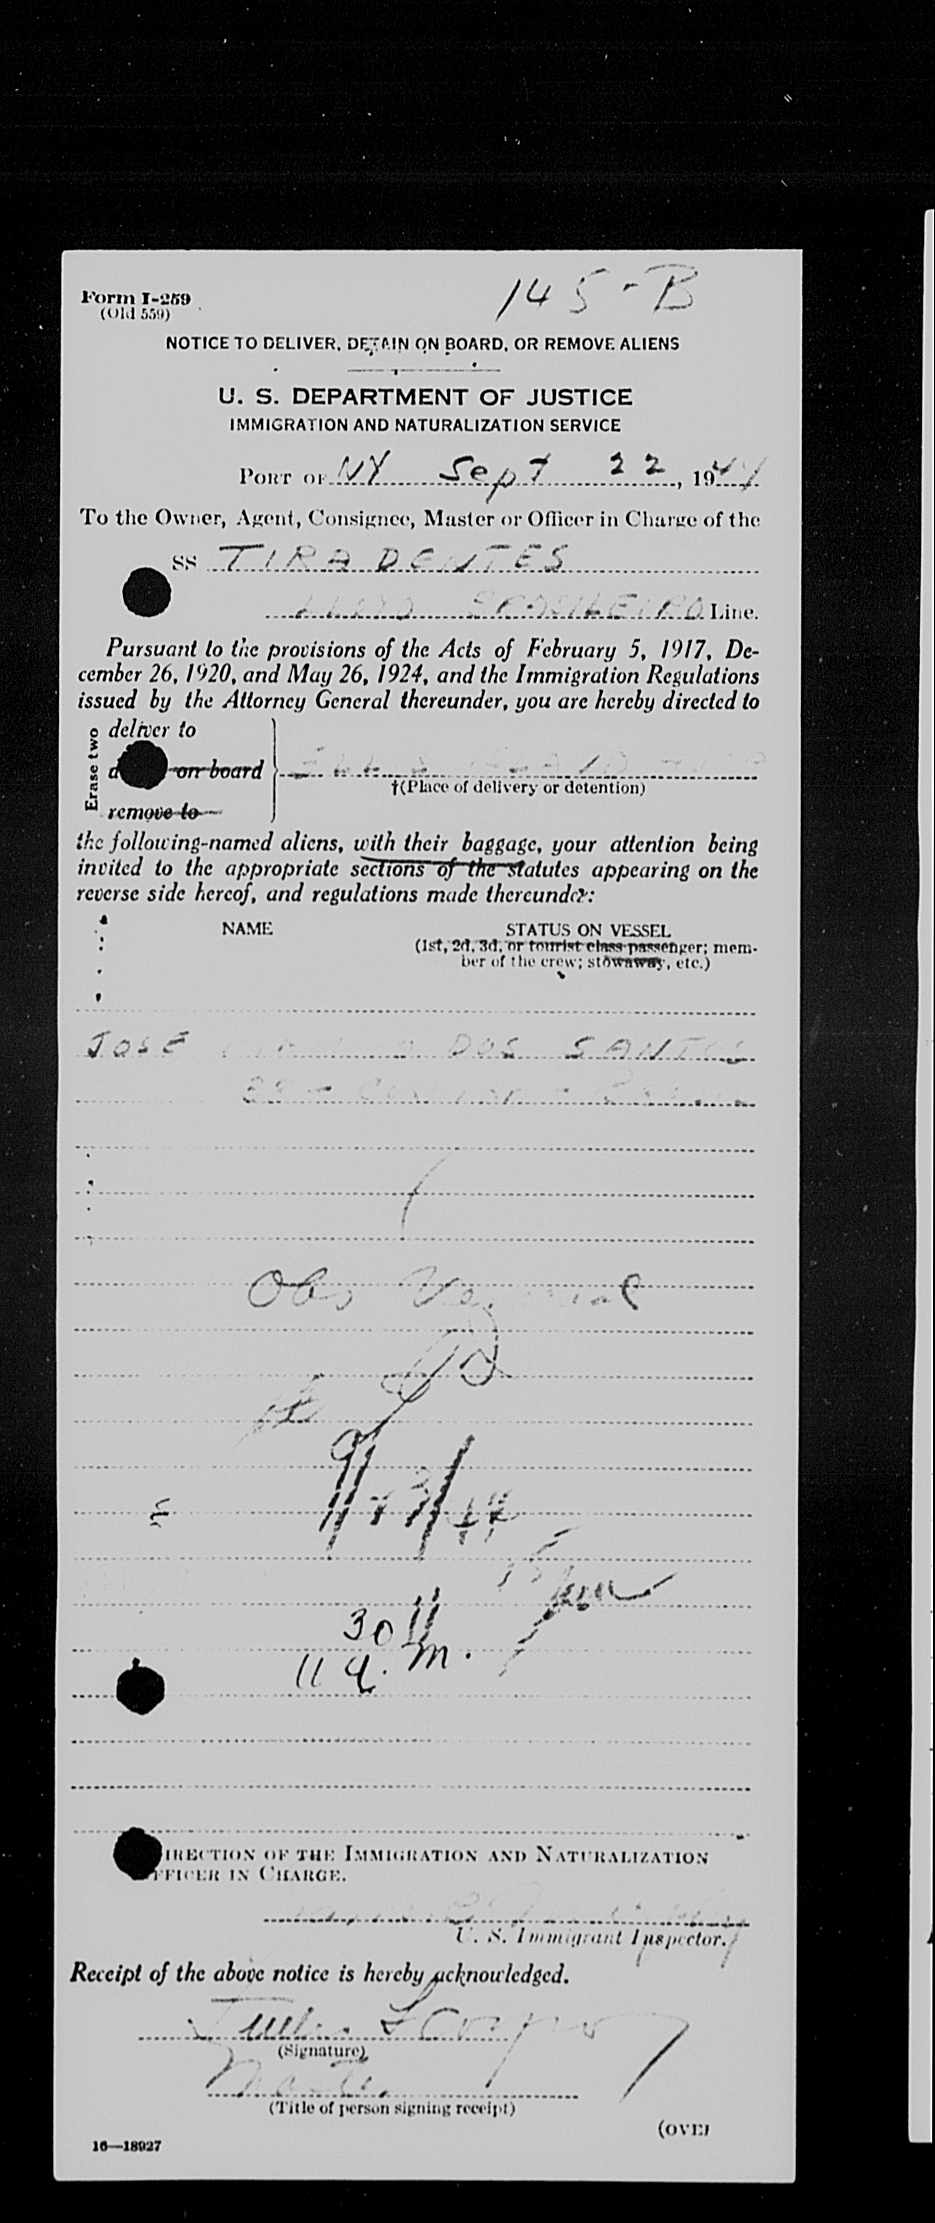 145-B
Form I-259
(Old 559)
NOTICE TO DELIVER, DETAIN ON BOARD, OR REMOVE ALIENS
U. S. DEPARTMENT OF JUSTICE
IMMIGRATION AND NATURALIZATION SERVICE
PORT OF NY Sept 22, 1944
To the Owner, Agent, Consignee, Master or Officer in Charge of the
SS TIRADENTES
LLOYD BRASILEIRO Line.
Pursuant to the provisions of the Acts of February 5, 1917, De-
cember 26, 1920, and May 26, 1924, and the Immigration Regulations
issued by the Attorney General thereunder, you are hereby directed to
Erase two
deliver to
on board
remove to
†(Place of delivery or detention)
the following-named aliens, with their baggage, your attention being
invited to the appropriate sections of the statutes appearing on the
reverse side hereof, and regulations made thereunder:
NAME STATUS ON VESSEL
(1st, 2d, 3d, or tourist class passenger; mem-
ber of the crew; stowaway, etc.)
JOSE DOS SANTOS
Obs
9/23/44
30
11 a.m.
DIRECTION OF THE IMMIGRATION AND NATURALIZATION
OFFICER IN CHARGE.
U. S. Immigrant Inspector.
Receipt of the above notice is hereby acknowledged.
(Signature)
Master
(Title of person signing receipt)
(OVE
16—18927